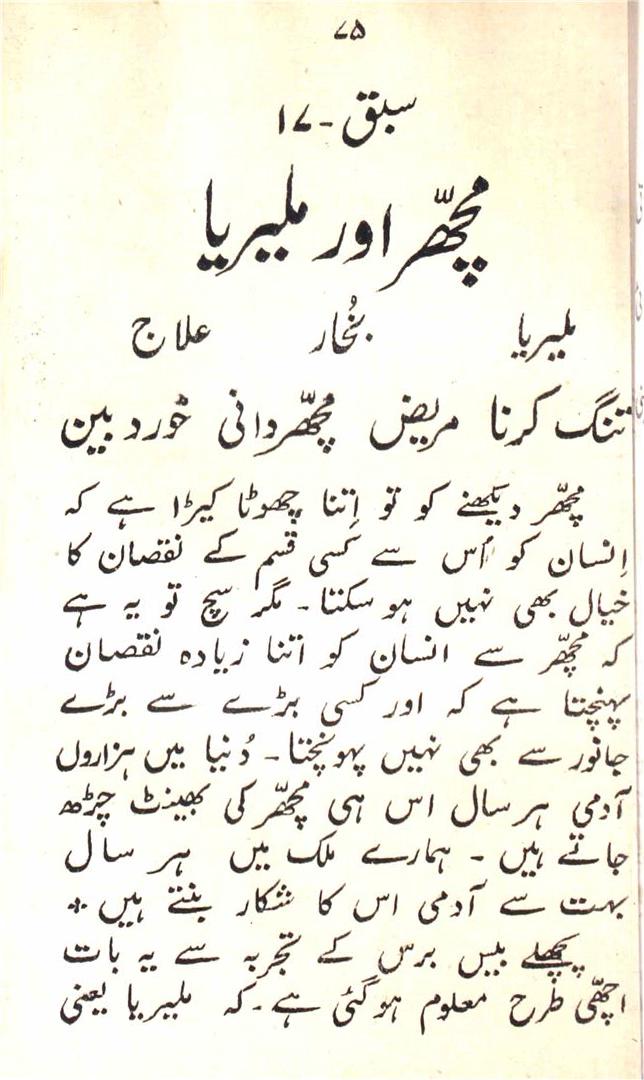 ۷۵
سبق - ۱۷
مچھّر اور ملیریا
ملیریا بُخار علاج
تنگ کرنا مریض مچھّر دانی خوردبین
مچھّر دیکھنے کو تو اِتنا چھوٹا کیڑا ہے کہ
اِنسان کو اُس سے کسی قسم کے نقصان کا
خیال بھی نہیں ہو سکتا۔ مگر سچ تو یہ ہے
کہ مچھّر سے انسان کو اتنا زیادہ نقصان
پہنچتا ہے کہ اور کسی بڑے سے بڑے
جانور سے بھی نہیں پہونچتا۔ دُنیا میں ہزاروں
آدمی ہر سال اس ہی مچھّر کی بھینٹ چڑھ
جاتے ہیں ۔ ہمارے ملک میں ہر سال
بہت سے آدمی اس کا شکار بنتے ہیں *
پچھلے بیس برس کے تجربہ سے یہ بات
اچھّی طرح معلوم ہو گئی ہے ۔ کہ ملیریا یعنی